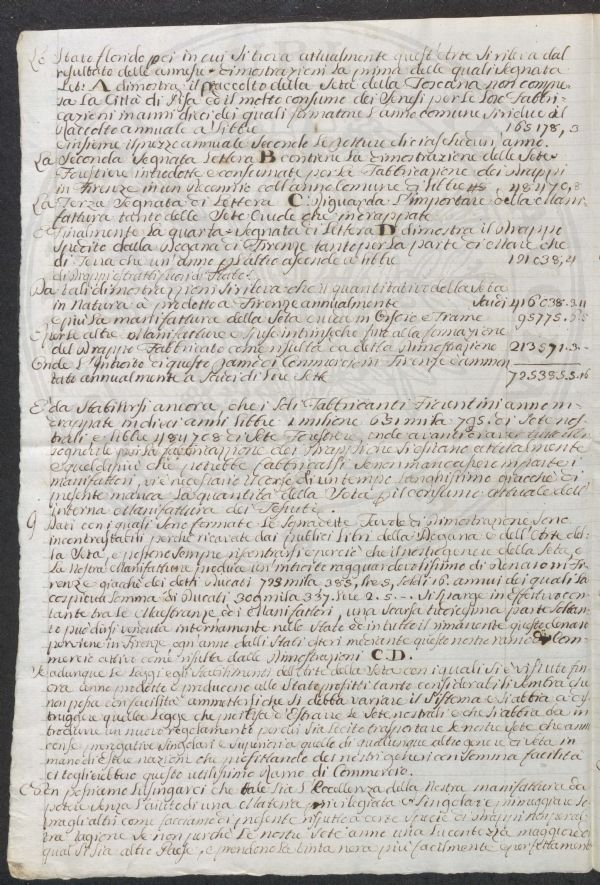 Lo Stato florido poi in cui si trova attualmente quest'Arte si rileva dal
risultato delle annesse dimostrazioni la prima delle quali segnata
Let: A dimostra il raccolto della Seta della Toscana non compre-
sa la Città di Pisa ed il molto consumo dei Veneti per le loro Fabbri-
cazioni in anni dieci dei quali formatone l'anno comune si riduce il
Raccolto annuale a libbre 165178,3
e insieme il prezzo annuale secondo le notizie di ciascheduno anno.
La Seconda Segnata Lettera B contiene la dimostrazione delle Sete
Forestiere introdotte e consumate per le Fabbricazione dei Drappi
in Firenze in un decennio coll'anno comune di libbre 48470,8
La Terza Segnata di Lettera C riguarda l'importare della Mani-
fattura tanto delle Sete Crude che in drappate
e finalmente la quarta Segnata di Lettera D dimostra il Drappo
spedito dalla Dogana di Firenze tanto per la parte di Mare che
di Terra che un'anno per l'altro ascende a libbre 121038,4
di drappi estratti fuori di Stato.
Da tali dimostrazioni si rileva che il quantitativo della Seta
in Natura à prodotto a Firenze annualmente Scudi 416038.3.11
e più la manifattura della Seta cruda in Orsoio e Trame 95775.
e per le altre Manifatture e spese intrinseche fino alla formazione
del Drappo Fabbricato come risulta da detta Dimostrazione 213571.3.
Onde l'Introito di questo ramo di Commercio in Firenze è ammon-
tato annualmente a Scudi di lire Sette 725385.5.16
E' da Stabilirsi ancora, che i Soli Fabbricanti Fiorentini anno in-
drappate in dieci anni libbre 1 milione 651 mila 795 di Sete nos-
trali e libbre 484708 di Sete Forestiere, onde avanti
per la fabbricazione dei Drappi che si esitano attualmente
e qualche più che potrebbe fabbricarsi se non mancassero in parte i
manifattori, vi è necessario il corso di un tempo lunghissimo giacché di
presente manca la quantità della Seta per il consumo attuale dell'
interna Manifattura dei Tessuti.
I Dati con i quali sono formate le sopradette Tavole di Dimostrazione sono
incontrastabili perché ricavate dai publici libri della Dogana e dell'Arte del-
la Seta, e possono sempre riscontrarsi e perciò che il nostro genere della Seta, e
la Nostra Manifattura produca un'introito ragguardevolissimo di denaro in Fi-
renze giacché dei detti Ducati 725 mila 385, lire 5, soldi 16 annui dei quali la
cospicua somma di Ducati 309 mila 337. lire 2.5.-. si sparge in effettivo con-
tante tra le Maestranze dei Manifattori, una scarsa tredicesima parte soltan-
to può dirsi venduta internamente nello Stato di tutto il rimanente questo denaro
perviene in Firenze ogni anno dalli Stati Esteri mediante questo nostro ramo di Com-
mercio attivo come risulta dalle Dimostrazioni C.D.
Se adunque le leggi e gli Stabilimenti dell'Arte della Seta con i quali si è vissuto fin
ora anno prodotto e producono allo Stato profitti tanto considerabili sembra che
non possa con facilità ammettersi che si debba variare il sistema e si abbia a di-
struggere quelle Legge che proibisce Estrarre le Sete nostrali e che si abbia da in-
trodurre un nuovo regolamento per cui sia lecito trasportare le nostre Sete che anno
certe prerogative singolari e superiori a quelle di qualunque altro genere di Seta in
mano di Estere nazioni che profittando dei nostri generi con somma facilità
ci toglierebbero questo utilissimo Ramo di Commercio.
Non possiamo lusingarci che tale sia l'Eccellenza della Nostra manifattura da
potere senza l'aiuto di una Materia privilegiata e singolare primeggiare so-
pra gli altri come facciamo di presente rispetto a certe specie di drappi non per al-
tra ragione se non perché le nostre Sete anno una lucentezza maggiore di
qual si sia altro Paese, e prendono la tinta nera più facilmente e perfettamente